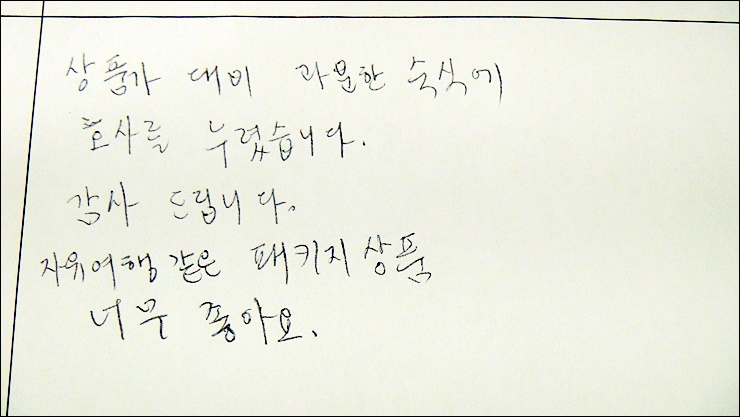 상품가 대비 과분한 숙식에
호사를 누렸습니다.
감사 드립니다.
자유여행 같은 패키지 상품
너무 좋아요.